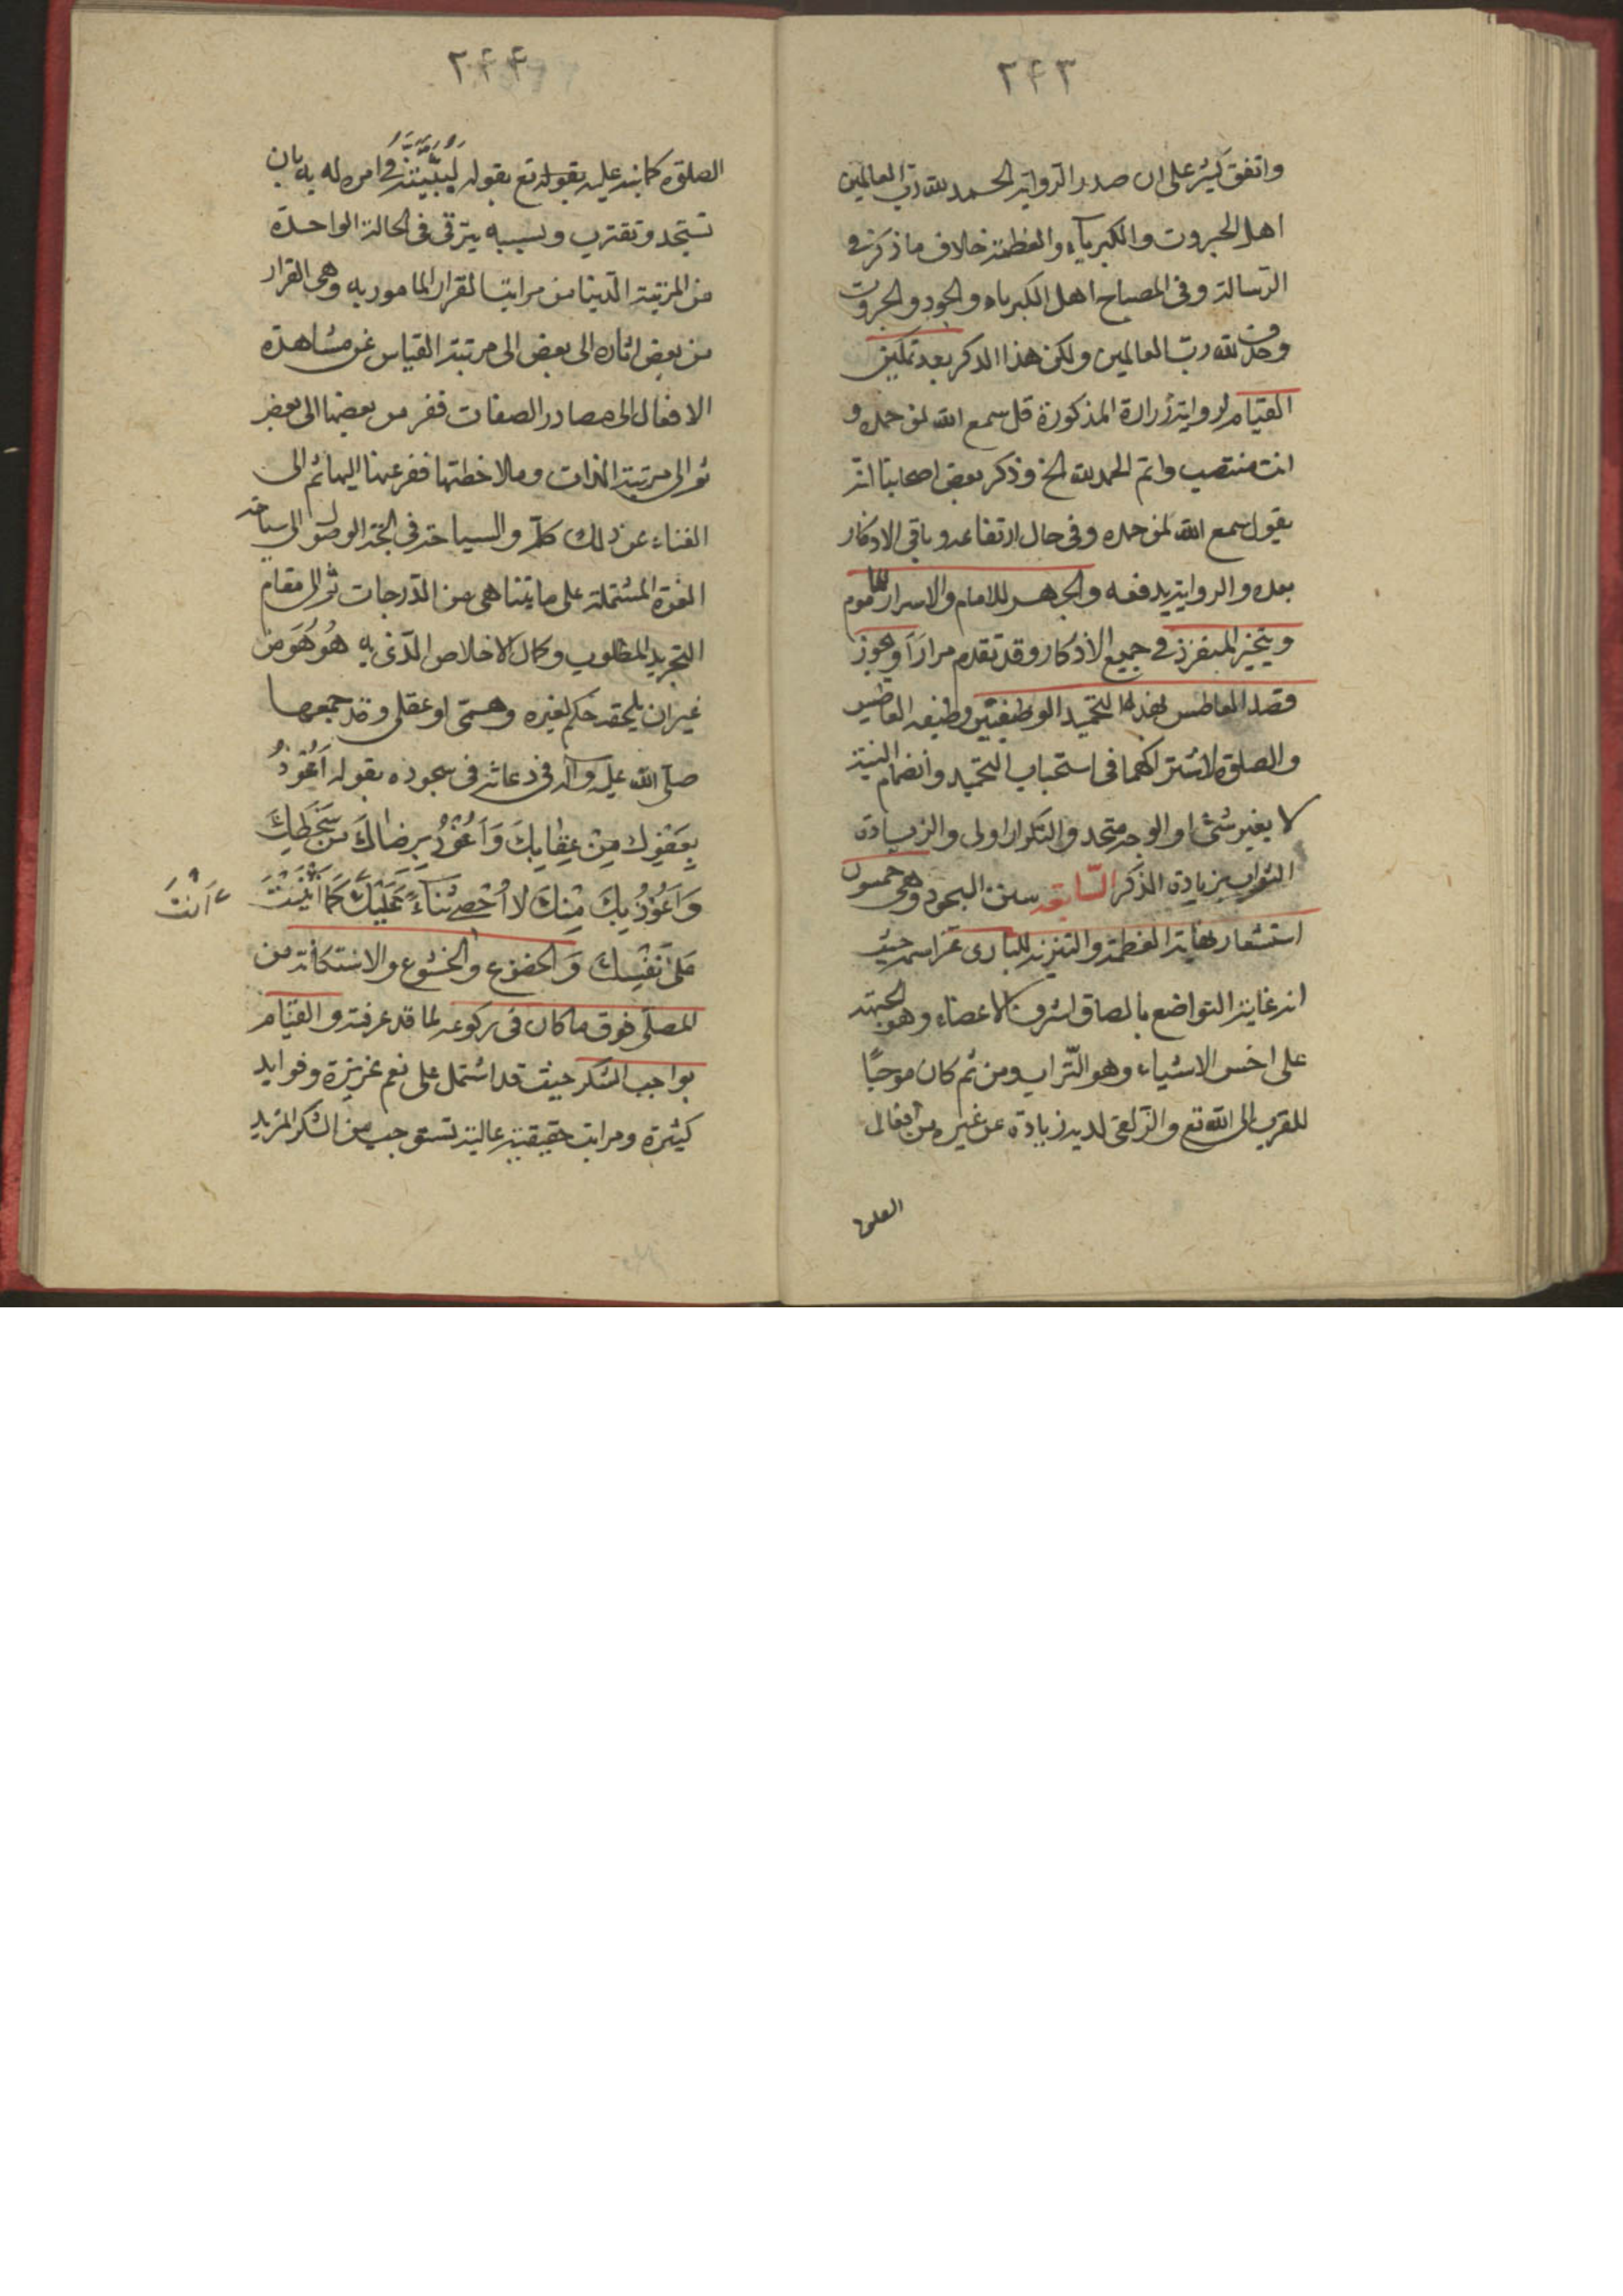 ٢٤٣
واتفق كثير على ان صدر الرواية الحمد لله رب العالمين
اهل الجبروت والكبرياء والعظمة خلاف ما ذكر في
الرسالة وفي المصباح اهل الكبرياء والجود والجبروت
لله رب العالمين ولكن هذا الذكر بعد تمكين
القيام لرواية زرارة المذكورة قل سمع الله لمن حمده و
انت منتصب واتم الحمد لله الخ وذكر بعض اصحابنا انه
يقول سمع الله لمن حمده وفي حال ارتفاعه وباقي الاذكار
بعده والرواية يدفعه والجهر للامام والاسرار للماموم
ويتخير المنفرد في جميع الاذكار وقد تقدم مرارًا ويجوز
قصد العاطس بهذا التحميد الوظيفتين وظيفه العاطس
والصلوة لاشتراكهما في استحباب التحميد وانضمام النية
لا يغير شيئا والوجه متحد والتكرار اولى والزيادة
الثواب بزيادة الذكر السّابعة سنن السجود وهي خمسون
استشعار نهاية العظمة والتنزيه للبارى عز اسمه حيث
انه غاية التواضع بالصاق اشرف الاعضاء وهو الجبهة
على اخس الاشياء وهو التّراب ومن ثم كان موجبًا
للقرب الى الله تع والزلفى لديه زيادة عن غيره من افعال
٢٤٤
الصلوة كما نبه عليه بقوله تع بقوله في امره له به بان
تسجد وتقترب وبسببه يترقى في الحالة الواحدة
من المرتبة الدنيا من مراتب القرار المامور به وهي القرار
من بعض اثاره الى بعض الى مرتبة القياس عن مشاهدة
الافعال الى مصادر الصفات ففر من بعضها الى بعض
ثم الى مرتبة الذات وملاحظتها ففر عنها اليها ثم الى
الفناء عن ذلك كله والسياحة في لجة الوصول الى ساحة
العزة المشتملة على ما يتناهى من الدّرجات ثم الى مقام
التجريد المطلوب وكمال الاخلاص الّذى به هُو هُوَ من
غير ان يلحقه حكم لغيره وهمّى او عقلى وقد جمعها
صلّى الله عليه وآله في دعائه في سجوده بقوله اَعُوذُ
بِعَفْوِكَ مِنْ عِقابِكَ وَاَعُوذُ بِرِضاكَ مِنْ سَخَطِكَ
وَاَعُوذُ بِكَ مِنْكَ لا اُحْصى ثَناءً عَلَيْكَ كَما اَثْنَيْتَ
اَنْتَ
عَلى نَفْسِكَ وَالخضوع والخشوع والاستكانة من
المصلّى فوق ما كان في ركوعه لما قد عرفته والقيام
بواجب الشكر حيث قد اشتمل على نعم غزيزة وفوايد
كثيرة ومراتب حقيقية عالية تستوجب من الشكر المزيد